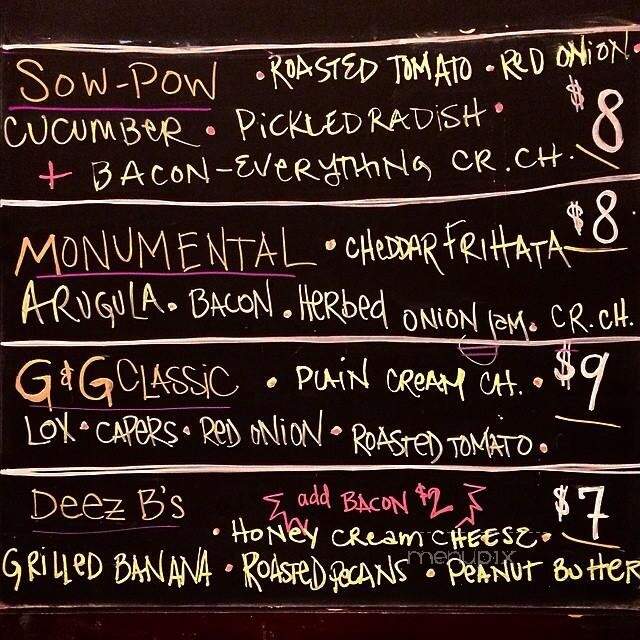 SOW-POW • ROASTED TOMATO • RED ONION •
CUCUMBER • PICKLED RADISH • $8
+ BACON-EVERYTHING CR. CH.
MONUMENTAL • CHEDDAR FRITTATA $8
ARUGULA • BACON • HERBED ONION JAM • CR. CH.
G&G CLASSIC • PLAIN CREAM CH. • $9
LOX • CAPERS • RED ONION • ROASTED TOMATO •
DEEZ B'S add BACON $2 $7
• HONEY CREAM CHEESE •
GRILLED BANANA • ROASTED PECANS • PEANUT BUTTER
menupix